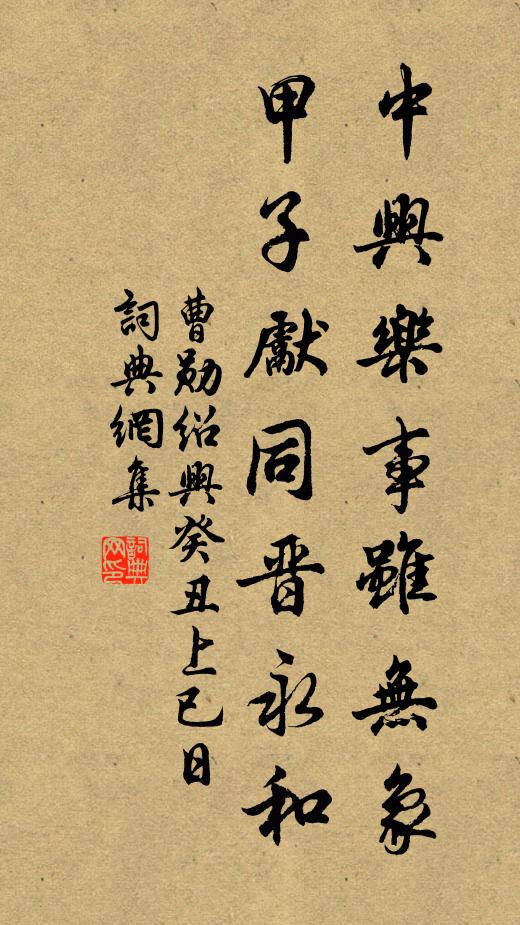 中興樂事雖無象
甲子獻同晋永和
曹勋紹興癸丑上巳日
詞典網集
詞典网印